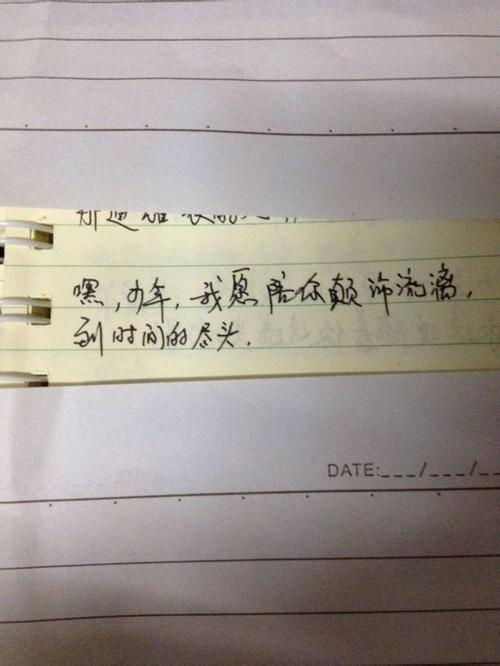 嘿,少年,我愿陪你颠沛流离,
到时间的尽头.
DATE:___/___/__